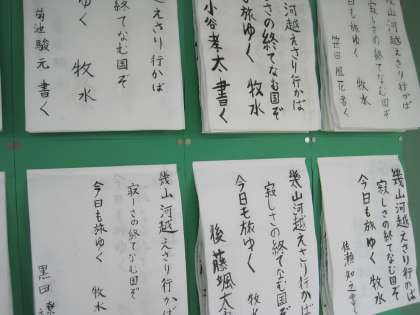 河越えさり行かば
さの終てなむ国ぞ
も旅ゆく 牧水
風花 書く
河越えさり行かば
さの終てなむ国ぞ
旅ゆく 牧水
小谷孝太書く
越えさり行かば
終てなむ国ぞ
ゆく 牧水
菊池駿元書く
幾山河越えさり行かば
寂しさの終てなむ国ぞ
今日も旅ゆく 牧水
佐瀬知之
幾山河越えさり行かば
寂しさの終てなむ国ぞ
今日も旅ゆく 牧水
後藤颯太
幾山河越えさり行かば
寂しさの終てなむ国ぞ
今日も旅ゆく 牧水
黒田